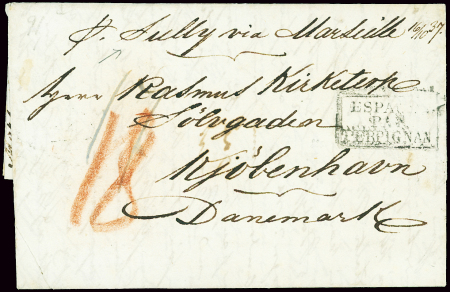 p. Sully via Marseille 16/10 37.
Herr Rasmus Kirketerp
Sölvgaden
Kjöbenhavn
Danemark
ESPA
PAR
PERPIGNAN
18